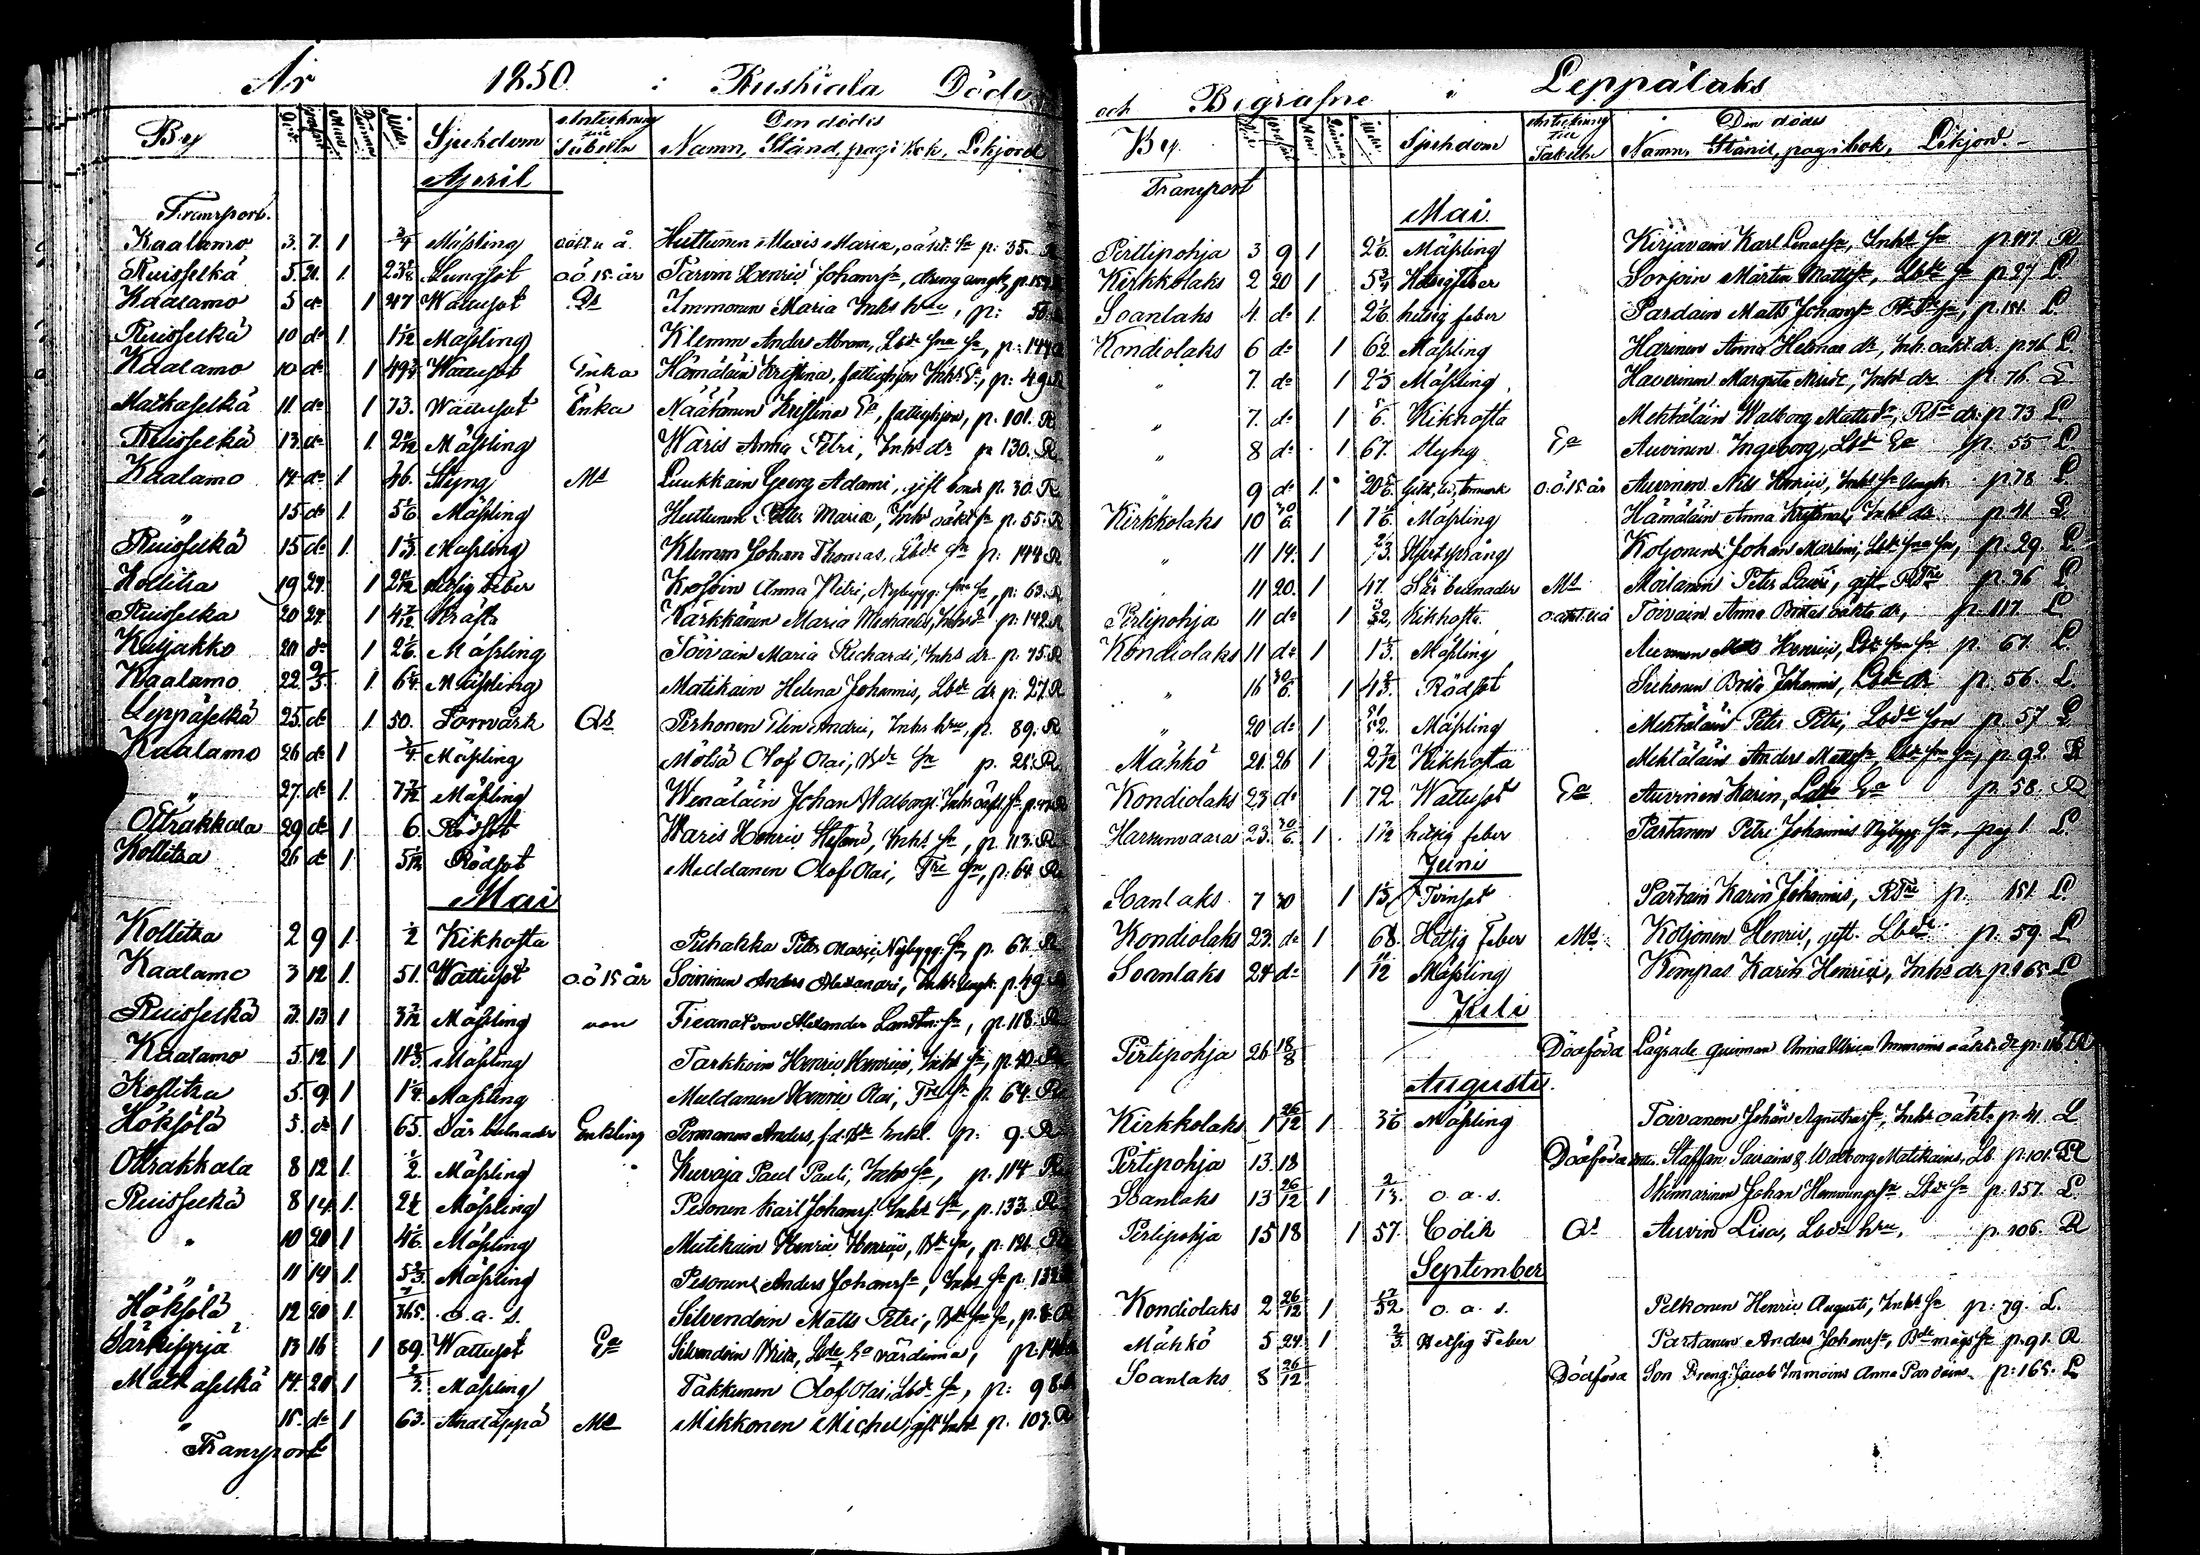 År 1850 i Ruskiala Döde
By Död Begrafne Mån Qvinna Ålder Sjukdom Anteckning till Tabelln Den dödes Namn, Stånd, pag: i bok, Likjord
April
Transport.
Kaalamo 3. 7. 1 3/4 Mäßling oäkt u å. Huttunen Maria, oäkt Sn p. 35. R
Ruisselkä 5. 21. 1. Lungsot o.ö 15 år Parvin Henric Johansson, dreng ungk,
Kaalamo 5 do 1 47 Wattusot Qs Immonen Maria Inhs hru, p: 50
Ruisselkä 10 do 1. Mäßling Klemm Anders Abram, p: 144
Kaalamo 10 do 1 Wattusot Enka Hämäläin Kristina, fattighjon Inhs Ea, p: 49 R
Matkaselkä 11. do 1 73. Wattusot Enka Näätänen Kristina Ea, fattighjon, p: 101. R
Ruisselkä 13. do 1. Mäßling Waris Anna Petri, Inhs dr p 130. R
Kaalamo 14 do 1 46. Styng Ms Luukkain Georg Adami, gift bonde p. 30. R
" 15 do 1. 5 1/6 Mäßling Huttunen Peter Maria, Inhs oäkt Sn p. 55. R
Ruisselkä 15 do 1. 1 1/3 Mäßling Klemm Johan Thomas, p: 144 R
Kollitza 19 27. 1 Hetsig feber Kossoin Anna Petri, Nybygg. p: 63. R
Ruisselkä 20 27. 1 4 7/12 Kräfta Kärkkänen Maria Michaelis, Inhs dr p: 142. R
Kuljakko 20 do 1 2 1/6 Mäßling Toivain Maria Richardi, Inhs dr p. 75. R
Kaalamo 22. 9/5. 1. 6 1/4 Mäßling Matikain Helena Johannis, Lbde dr p: 27. R
Leppäselkä 25. do 1 50. Torrvärk Qs Pirhonen Elin Andrei, Inhs hru, p. 89. R
Kaalamo 26 do 1 3/4. Mäßling Mölsä Olof Olai, Bde Sn p. 21. R
" 27. do 1. 7 7/12 Mäßling Wenäläin Johan Walborgs Inhs oäkt Sn
Ottrakkala 29 do 1 6. Rödsot Waris Henric Stefans, Inhs Sn, p. 113. R
Kollitza 26 do 1. Rödsot Muldanen Olof Olai, Tre Sn, p: 64. R
Mai
Kollitza 2 9 1. 1/2 Kikhosta Puhakka Peter Nybygg. Sn, p: 67. R
Kaalamo 3 12 1. 51. Wattusot o.ö 15 år Soininen Anders Alexandri, Inhs Ungk. p. 49. R
Ruisselkä 3. 13 1 Mäßling von Fieandt von Alexander Landtm. Sn, p. 118. R
Kaalamo 5. 12 1 11 2/3 Mäßling Tarkkoin Henric Henrici, Inhs Sn, p. 40. R
Kollitza 5. 9. 1 1 1/4. Mäßling Muldanen Henric Olai, Tre Sn p. 64. R
Höksölä 5. do 1 65. Sår bulnader Enkling Permanen Anders, fd. Bde Enkl. p: 9. R
Ottrakkala 8 12 1. 1/2. Mäßling Kuvaja Paul Pauli, Inhs Sn, p. 114 R
Ruisselkä 8 14 1. 2 1/2 Mäßling Pesonen Karl Johans. Inhs Sn, p. 133. R
" 10 20 1 4 1/6. Mäßling Mutikain Henric Henrici, Bde Sn, p. 121. R
" 11 14 1. 5 2/3. Mäßling Pesonen Anders Johanssn, Inhs Sn p: 132
Höksölä 12 20 1. 7/365. o.a.s. Silvendoin Matts Petri, Bde p. 8. R
Särkisyrjä 13 16 1 89. Wattusot Ea Silvendoin Brita, Lbde Ea värdinna,
Matkaselkä 14. 20 1 Mäßling Takkunen Olof Olai Lbde Sn, p: 98
" 15. do 1 63. Andtäppa Ms Mikkonen Michel, gift Inhs p. 103. R
Transport
och Begrafne i Leppälaks
By. Död Begrafne Mån Qvinna Ålder Sjukdom Anteckning till Tabelln Den dödes Namn, Stånd, pag i bok, Likjord.
Transport
Mai.
Pirtipohja 3 9 1 2 1/6. Mäßling Kirjavain Karl Inhs Sn p. 117. R
Kirkkolaks 2 20 1 5 3/4 Hetsig feber Sorjoin Mårten Mattssn, Lbde Sn p. 27. L
Soanlaks 4. do 1. 2 1/6. hetsig feber Pardain Matts Johanssn p. 151. L
Kondiolaks 6 do 1 62 Mäßling Harinen Anna Helenas dr, Inh. oäkt dr. p. 76. L
" 7. do 1 2 1/3 Mäßling Haverinen Margeta Inhs dr p. 76. L
" 7. do 1 Kikhosta Mehtäläin Walborg Mattsdr, p. 73 L
" 8 do 1 67. Styng Ea Auvinen Ingeborg, Lbde Ea p. 55 L
" 9 do 1. o.ö.15 år Auvinen Nils Henrici, Inhs Sn Ungk. p. 78 L
Kirkkolaks 10 30/6. 1 7 1/6. Mäßling Hämäläin Anna Kristinas, Inhs dr. p. 41. L
" 11 14. 1 2/3. Hjertsprång Koljonen Johan Martini, p: 29. L
" 11 20. 1 47. Sår bulnader Ms Moilanen Peter Lauri, gift p: 36 L
Pirtipohja 11 do 1 3/52. Kikhosta. o.äkt. u å Toivain Anna Britas oäkta dr, p. 117. L
Kondiolaks 11 do 1 1/3. Mäßling Auvinen Matts Henrici, p. 67. L
" 16 30/6. 1 4 2/3. Rödsot Siikonen Brita Johannis, Lbde dr p: 56. L
" 20 do 1 Mäßling Mehtäläin Peter Petri, Lbde Son p. 57 L
Mähkö 21. 26 1 2 7/12 Kikhosta Mehtäläin Anders Mattssn, p. 92. R
Kondiolaks 23 do 1 72 Wattusot Ea Auvinen Karin, Lbde Ea p. 58. R
23. 30/6. 1. hetsig feber Partanen Petri Johannis Nybygg Sn, pag 1. L
Juni
Soanlaks 7 30 1 Tvinsot Partain Karin Johannis, p. 151. L
Kondiolaks 23. do 1 68. Hetsig feber Ms Koljonen Henric, gift. Lbde p. 59. L
Soanlaks 24 do 1 11/12 Mäßling Kempas Karin Henrici, Inhs dr p. 165 L
Juli
Pirtipohja 26 18/8 Dödföda Lägrade quinnan Anna Ulrica Immoins oäkt. dr p: 116. R
Augusti.
Kirkkolaks 1 26/12 1 3 1/6 Mäßling Toivanen Johan Agnethas Sn, Inhs oäkt p: 41. L
Pirtipohja 13. 18 Dödföda Staffan Sairains & Walborg Matikains, Lb. p: 101. R
Soanlaks 13 26/12 1 2/13. o.a.s. Kinnarinen Johan Hemmingssn, Lbde Sn p. 157. L
Pirtipohja 15 18 1 57. Colik Qs Auvin Lisa, Lbde hru, p. 106. R
September
Kondiolaks 2 26/12 1 o.a.s. Pelkonen Henric Augusti, Inhs Sn p: 79. L.
Mähkö 5 24. 1 2/3. Hetsig Feber Partanen Anders Johanssn, Bde mågs Sn p. 91. R
Soanlaks 8 26/12 Dödföda Son Dreng. Jacob Immoins Anna Pardains p: 165. L